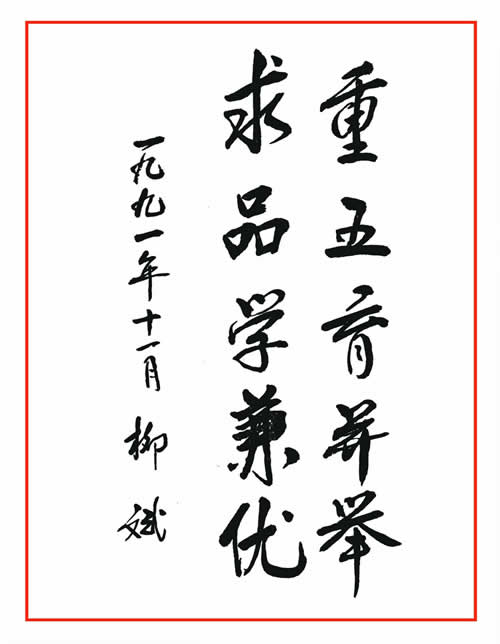 重五育并举
求品学兼优
一九九一年十一月 柳斌